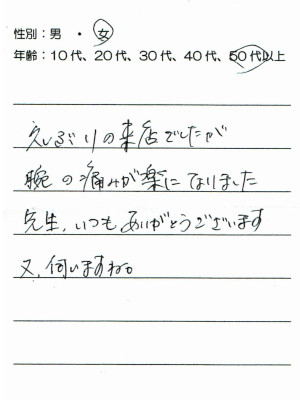 性別：男 ・ 女
年齢：10代、20代、30代、40代、50代以上
久しぶりの来店でしたが
腕の痛みが楽になりました
先生、いつもありがとうございます
又、伺いますね。